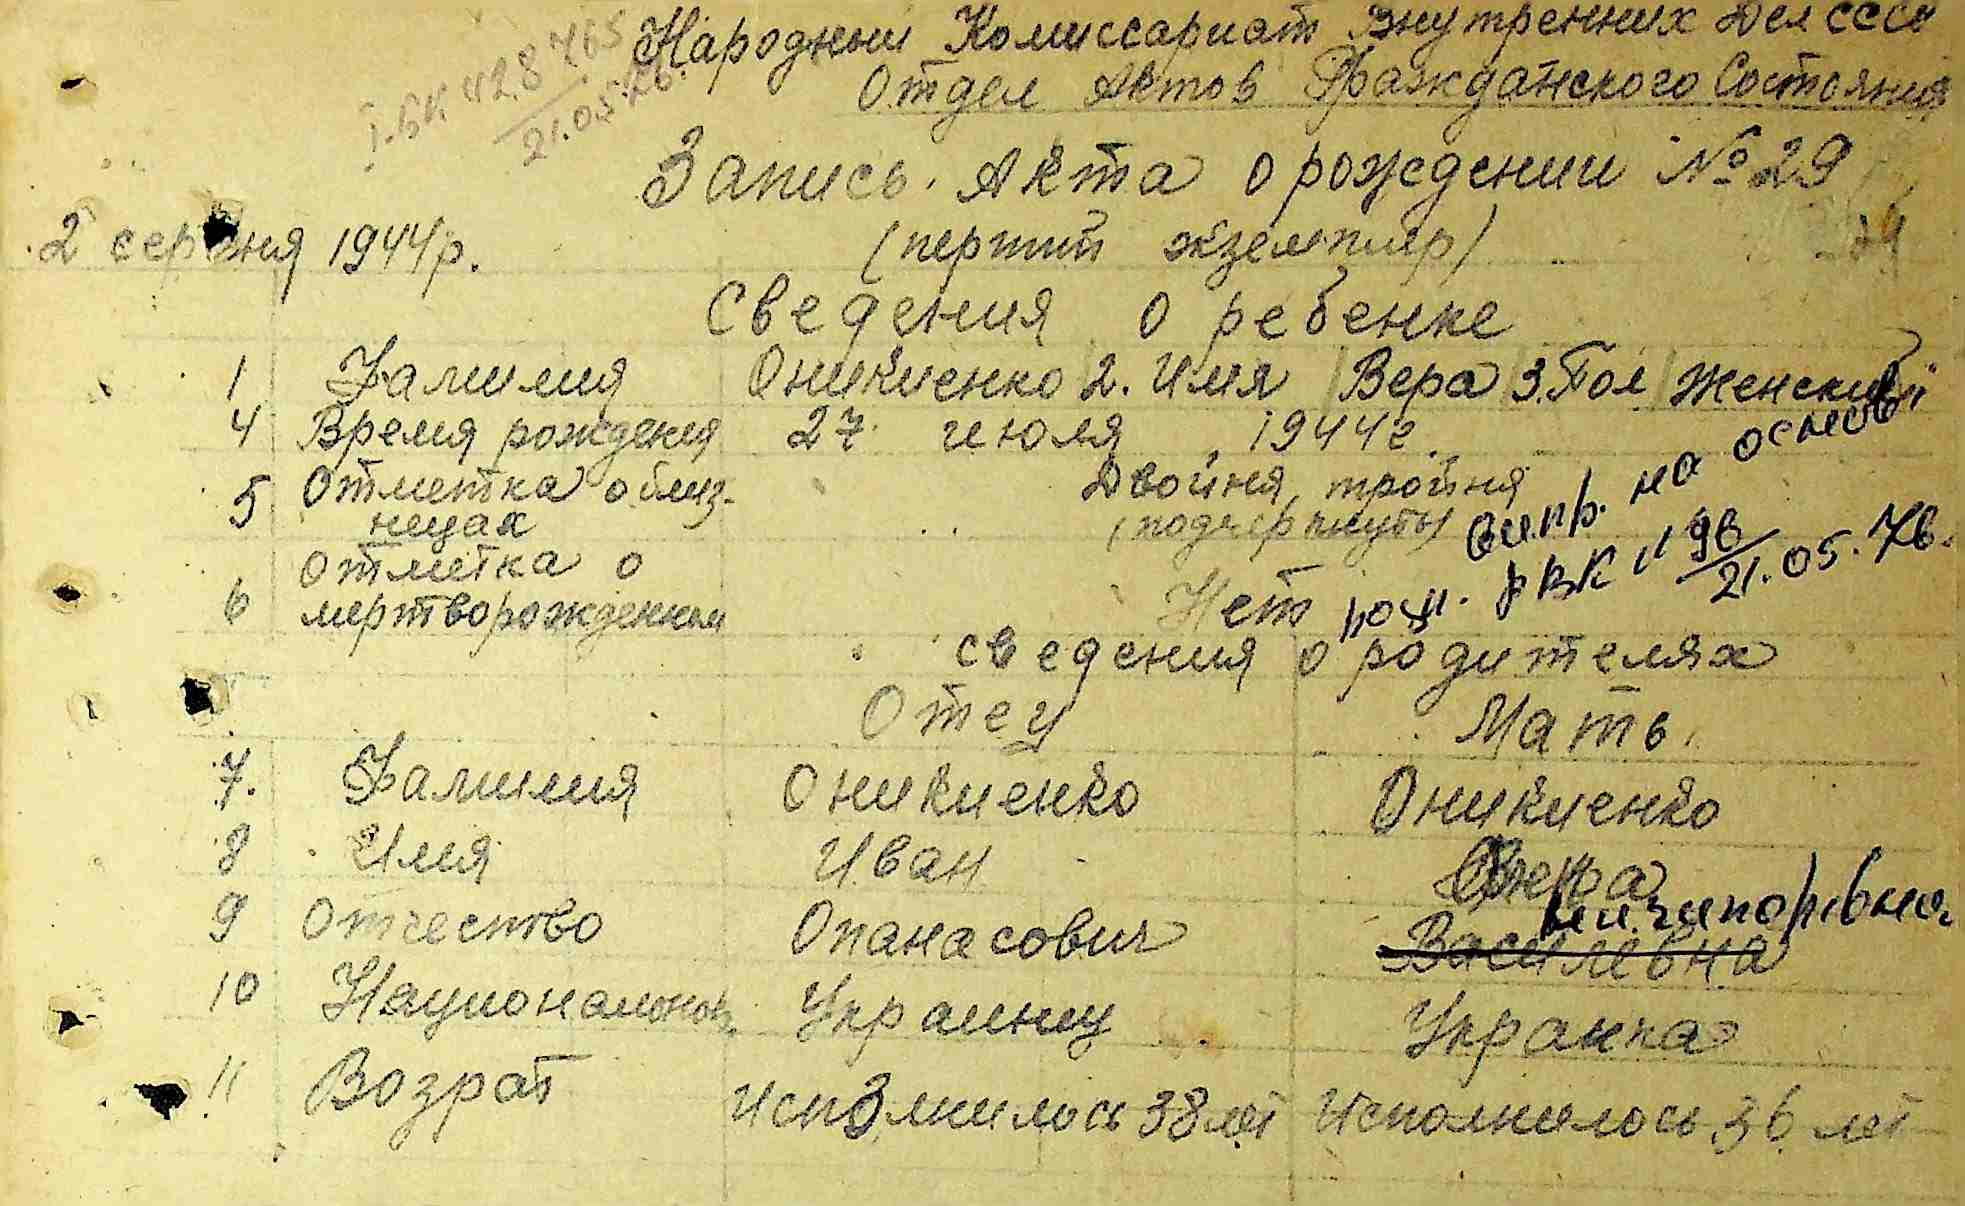 Народный Комиссариат Внутренних Дел СССР
Отдел Актов Гражданского Состояния
428 765
21.05.76.
Запись Акта о рождении № 29
2 серпня 1944 р. (перший экземпляр)
Сведения о ребенке
1 Фамилия Оникиенко 2. Имя Вера 3. Пол Женский
4 Время рождения 27 июля 1944 г.
5 Отметка о близ- Двойня, тройня
ницах (подчеркнуть)
випр. на основі
Отметка о
6 мертворожденном Нет
рвк 98
21.05.76.
сведения о родителях
Отец Мать
7. Фамилия Оникиенко Оникиенко
8 Имя Иван
9 Отчество Опанасович Василевна Ничипорівна
10 Национальность Украинец Украинка
11 Возрат Исполнилось 38 лет Исполнилось 36 лет